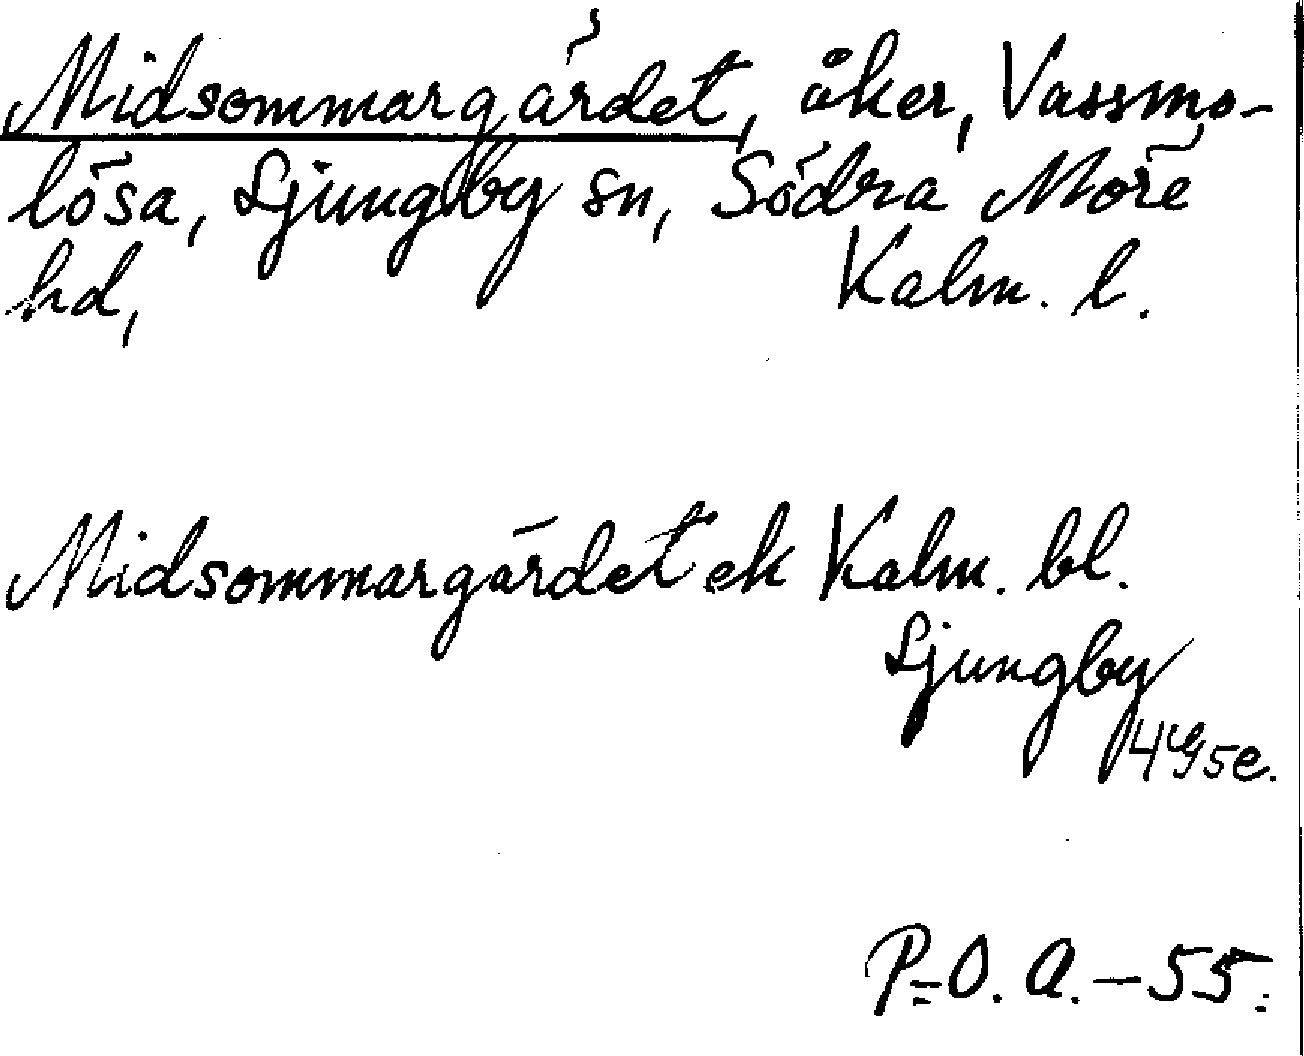 Midsommargärdet, åker, Vassmo-
lösa, Ljungby sn, Södra Möre
hd, Kalm. l.
Midsommargärdet ek Kalm. bl.
Ljungby
4G5e.
P-O. A. - 55.